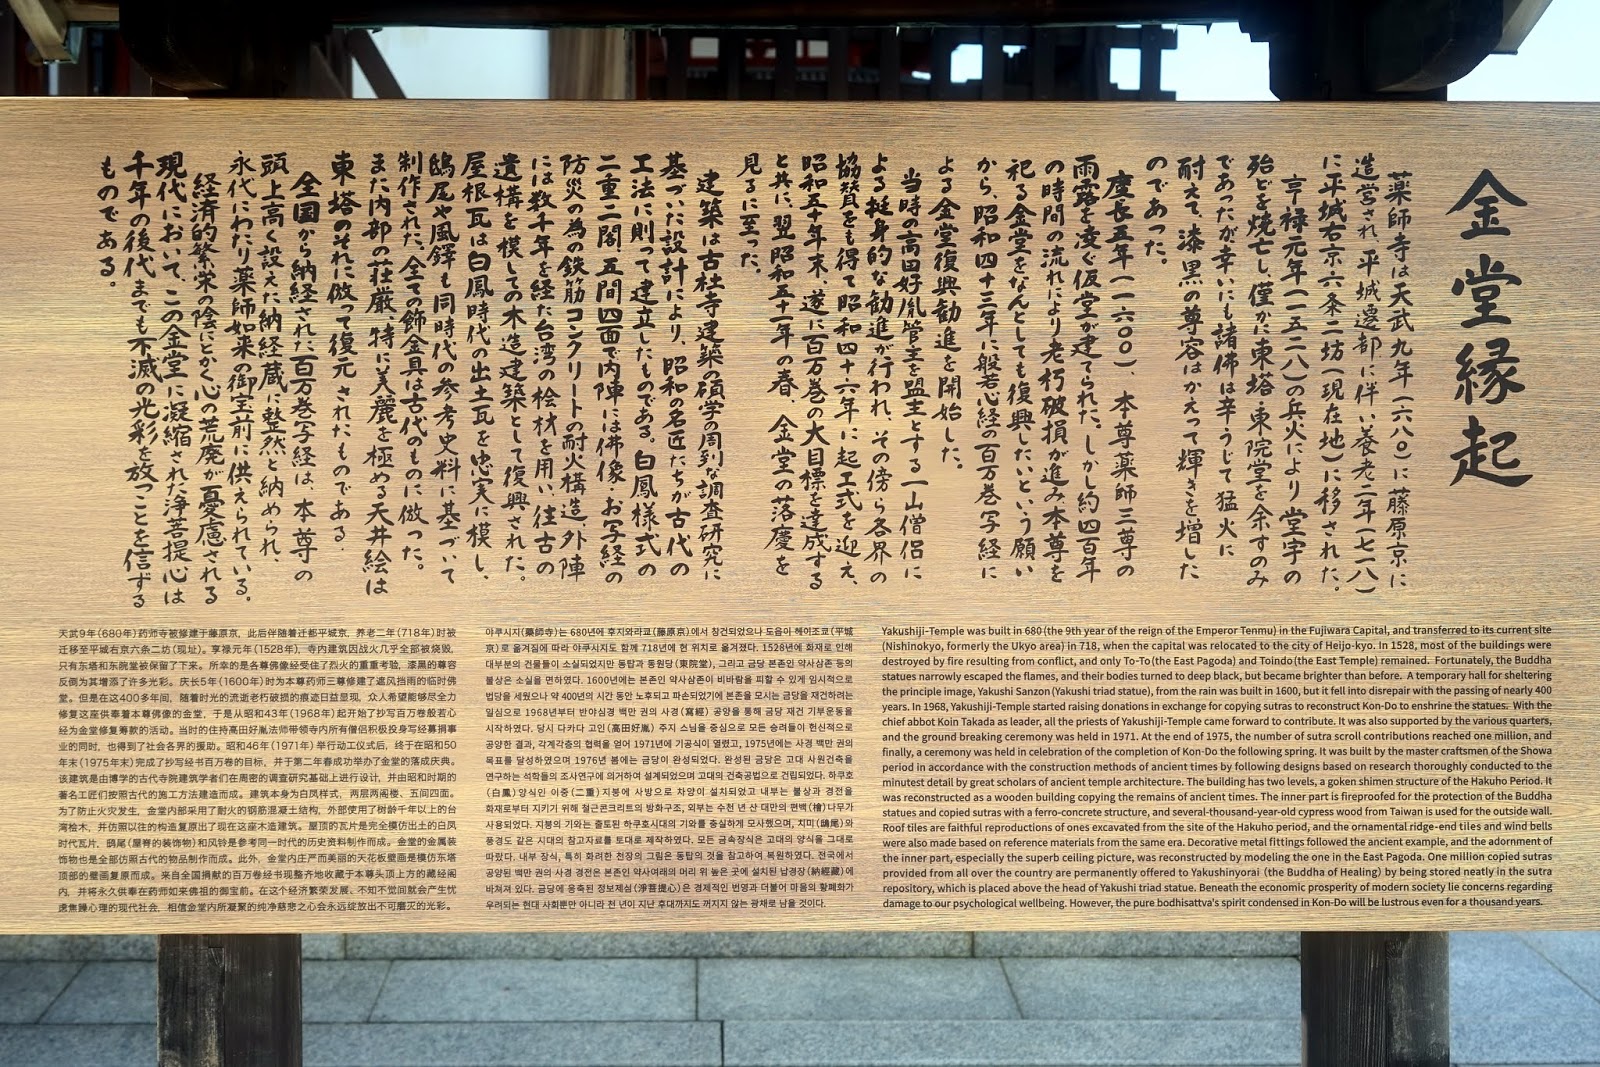 金堂縁起
薬師寺は天武九年(六八〇)に藤原京に
造営され、平城遷都に伴い養老二年(七一八)
に平城右京六条二坊(現在地)に移された。
亨禄元年(一五二八)の兵火により堂宇の
殆どを焼亡し、僅かに東塔・東院堂を余すのみ
であったが幸いにも諸佛は辛うじて猛火に
耐えて、漆黒の尊容はかえって輝きを増した
のであった。
慶長五年(一六〇〇)、本尊薬師三尊の
雨露を凌ぐ仮堂が建てられた。しかし約四百年
の時間の流れにより老朽破損が進み本尊を
祀る金堂をなんとしても復興したいという願い
から、昭和四十三年に般若心経の百万巻写経に
よる金堂復興勧進を開始した。
当時の高田好胤管主を盟主とする一山僧侶に
よる挺身的な勧進が行われ、その傍ら各界の
協賛をも得て昭和四十六年に起工式を迎え、
昭和五十年末、遂に百万巻の大目標を達成する
と共に、翌昭和五十一年の春、金堂の落慶を
見るに至った。
建築は古社寺建築の碩学の周到な調査研究に
基づいた設計により、昭和の名匠たちが古代の
工法に則って建立したものである。白鳳様式の
二重二閣、五間四面で内陣には佛像・お写経の
防災の為の鉄筋コンクリートの耐火構造、外陣
には数千年を経た台湾の桧材を用い、往古の
遺構を模しての木造建築として復興された。
屋根瓦は白鳳時代の出土瓦を忠実に模し、
鴟尾や風鐸も同時代の参考史料に基づいて
制作された。全ての飾金具は古代のものに倣った。
また内部の荘厳、特に美麗を極める天井絵は
東塔のそれに倣って復元されたものである.
全国から納経された百万巻写経は、本尊の
頭上高く設えた納経蔵に整然と納められ、
永代にわたり薬師如来の御宝前に供えられている。
経済的繁栄の陰にとかく心の荒廃が憂慮される
現代において、この金堂に凝縮された浄菩提心は
千年の後代までも不滅の光彩を放つことを信ずる
ものである。
天武9年(680年)药师寺被修建于藤原京，此后伴随着迁都平城京，养老二年(718年)时被
迁移至平城右京六条二坊(现址)。享禄元年(1528年)，寺内建筑因战火几乎全部被烧毁，
只有东塔和东院堂被保留了下来。所幸的是各尊佛像经受住了烈火的重重考验，漆黑的尊容
反倒为其增添了许多光彩。庆长5年(1600年)时为本尊药师三尊修建了遮风挡雨的临时佛
堂。但是在这400多年间，随着时光的流逝老朽破损的痕迹日益显现，众人希望能够尽全力
修复这座供奉着本尊佛像的金堂，于是从昭和43年(1968年)起开始了抄写百万卷般若心
经为金堂修复筹款的活动。当时的住持高田好胤法师带领寺内所有僧侣积极投身写经募捐事
业的同时，也得到了社会各界的援助。昭和46年(1971年)举行动工仪式后，终于在昭和50
年末(1975年末)完成了抄写经书百万卷的目标，并于第二年春成功举办了金堂的落成庆典。
该建筑是由博学的古代寺院建筑学者们在周密的调查研究基础上进行设计，并由昭和时期的
著名工匠们按照古代的施工方法建造而成。建筑本身为白凤样式，两层两阁楼、五间四面。
为了防止火灾发生，金堂内部采用了耐火的钢筋混凝土结构，外部使用了树龄千年以上的台
湾桧木，并仿照以往的构造复原出了现在这座木造建筑。屋顶的瓦片是完全模仿出土的白凤
时代瓦片，鸱尾(屋脊的装饰物)和风铃是参考同一时代的历史资料制作而成。金堂的金属装
饰物也是全部仿照古代的物品制作而成。此外，金堂内庄严而美丽的天花板壁画是模仿东塔
顶部的壁画复原而成。来自全国捐献的百万卷经书现整齐地收藏于本尊头顶上方的藏经阁
内，并将永久供奉在药师如来佛祖的御宝前。在这个经济繁荣发展、不知不觉间就会产生忧
虑焦躁心理的现代社会，相信金堂内所凝聚的纯净慈悲之心会永远绽放出不可磨灭的光彩。
야쿠시지(藥師寺)는 680년에 후지와라쿄(藤原京)에서 창건되었으나 도읍이 헤이조쿄(平城
京)로 옮겨짐에 따라 야쿠시지도 함께 718년에 현 위치로 옮겨졌다. 1528년에 화재로 인해
대부분의 건물들이 소실되었지만 동탑과 동원당(東院堂), 그리고 금당 본존인 약사삼존 등의
불상은 소실을 면하였다. 1600년에는 본존인 약사삼존이 비바람을 피할 수 있게 임시적으로
법당을 세웠으나 약 400년의 시간 동안 노후되고 파손되었기에 본존을 모시는 금당을 재건하려는
일심으로 1968년부터 반야심경 백만 권의 사경(寫經) 공양을 통해 금당 재건 기부운동을
시작하였다. 당시 다카다 고인(高田好胤) 주지 스님을 중심으로 모든 승려들이 헌신적으로
공양한 결과, 각계각층의 협력을 얻어 1971년에 기공식이 열렸고, 1975년에는 사경 백만 권의
목표를 달성하였으며 1976년 봄에는 금당이 완성되었다. 완성된 금당은 고대 사원건축을
연구하는 석학들의 조사연구에 의거하여 설계되었으며 고대의 건축공법으로 건립되었다. 하쿠호
(白鳳) 양식인 이중(二重)지붕에 사방으로 차양이 설치되었고 내부는 불상과 경전을
화재로부터 지키기 위해 철근콘크리트의 방화구조, 외부는 수천 년 산 대만의 편백(檜)나무가
사용되었다. 지붕의 기와는 출토된 하쿠호시대의 기와를 충실하게 모사했으며, 치미(鴟尾)와
풍경도 같은 시대의 참고자료를 토대로 제작하였다. 모든 금속장식은 고대의 양식을 그대로
따랐다. 내부 장식, 특히 화려한 천장의 그림은 동탑의 것을 참고하여 복원하였다. 전국에서
공양된 백만 권의 사경 경전은 본존인 약사여래의 머리 위 높은 곳에 설치된 납경장(納經藏)에
바쳐져 있다. 금당에 응축된 정보제심(淨菩提心)은 경제적인 번영과 더불어 마음의 황폐화가
우려되는 현대 사회뿐만 아니라 천 년이 지난 후대까지도 꺼지지 않는 광채로 남을 것이다.
Yakushiji-Temple was built in 680 (the 9th year of the reign of the Emperor Tenmu) in the Fujiwara Capital, and transferred to its current site
(Nishinokyo, formerly the Ukyo area) in 718, when the capital was relocated to the city of Heijo-kyo. In 1528, most of the buildings were
destroyed by fire resulting from conflict, and only To-To (the East Pagoda) and Toindo (the East Temple) remained. Fortunately, the Buddha
statues narrowly escaped the flames, and their bodies turned to deep black, but became brighter than before. A temporary hall for sheltering
the principle image, Yakushi Sanzon (Yakushi triad statue), from the rain was built in 1600, but it fell into disrepair with the passing of nearly 400
years. In 1968, Yakushiji-Temple started raising donations in exchange for copying sutras to reconstruct Kon-Do to enshrine the statues. With the
chief abbot Koin Takada as leader, all the priests of Yakushiji-Temple came forward to contribute. It was also supported by the various quarters,
and the ground breaking ceremony was held in 1971. At the end of 1975, the number of sutra scroll contributions reached one million, and
finally, a ceremony was held in celebration of the completion of Kon-Do the following spring. It was built by the master craftsmen of the Showa
period in accordance with the construction methods of ancient times by following designs based on research thoroughly conducted to the
minutest detail by great scholars of ancient temple architecture. The building has two levels, a goken shimen structure of the Hakuho Period. It
was reconstructed as a wooden building copying the remains of ancient times. The inner part is fireproofed for the protection of the Buddha
statues and copied sutras with a ferro-concrete structure, and several-thousand-year-old cypress wood from Taiwan is used for the outside wall.
Roof tiles are faithful reproductions of ones excavated from the site of the Hakuho period, and the ornamental ridge-end tiles and wind bells
were also made based on reference materials from the same era. Decorative metal fittings followed the ancient example, and the adornment of
the inner part, especially the superb ceiling picture, was reconstructed by modeling the one in the East Pagoda. One million copied sutras
provided from all over the country are permanently offered to Yakushinyorai (the Buddha of Healing) by being stored neatly in the sutra
repository, which is placed above the head of Yakushi triad statue. Beneath the economic prosperity of modern society lie concerns regarding
damage to our psychological wellbeing. However, the pure bodhisattva's spirit condensed in Kon-Do will be lustrous even for a thousand years.